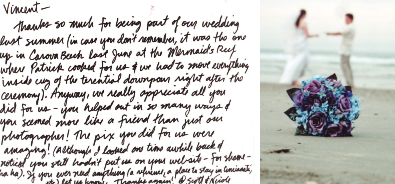 Vincent —
Thanks so much for being part of our wedding
last summer (in case you don't remember, it was the one
up in Carova Beach last June at the Mermaids Reef
where Patrick cooked for us & we had to move everything
inside cuz of the torrential downpour right after the
ceremony). Anyway, we really appreciate all you
did for us - you helped out in so many ways &
you seemed more like a friend than just our
photographer! The pix you did for us were
amazing! (although I looked on time awhile back &
noticed you still hadn't put us on your web-site - For shame -
ha ha). If you ever need anything (a reference, a place to stay in
let us know. Thanks again! Scott & Nicole